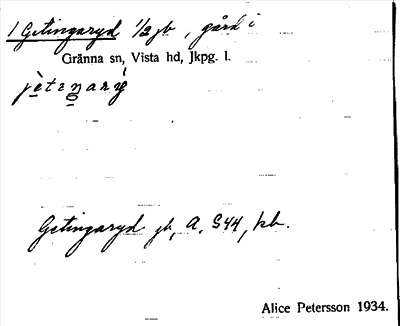 1 Getingaryd 1/2 jb, gård i
Gränna sn, Vista hd, Jkpg. l.
Getingaryd jb, A, S44, kb.
Alice Petersson 1934.